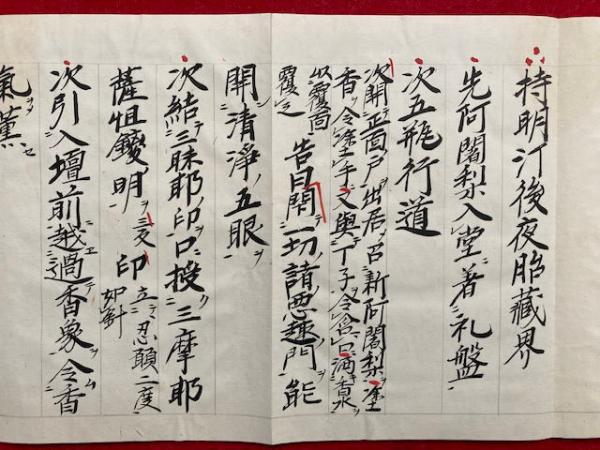 持明汀後夜胎藏界
先阿闍梨入堂著礼盤
次五瓶行道
次開正面戸出居召新阿闍梨塗
香令塗手又與丁子令含口洒香水
以覆面
覆之 告曰閇一切諸惡趣門能
開清淨五眼
次結三昧耶印口授三摩耶
薩怛鑁明三反印立忍願二度
如針
次引入壇前越過香象令香
氣薰